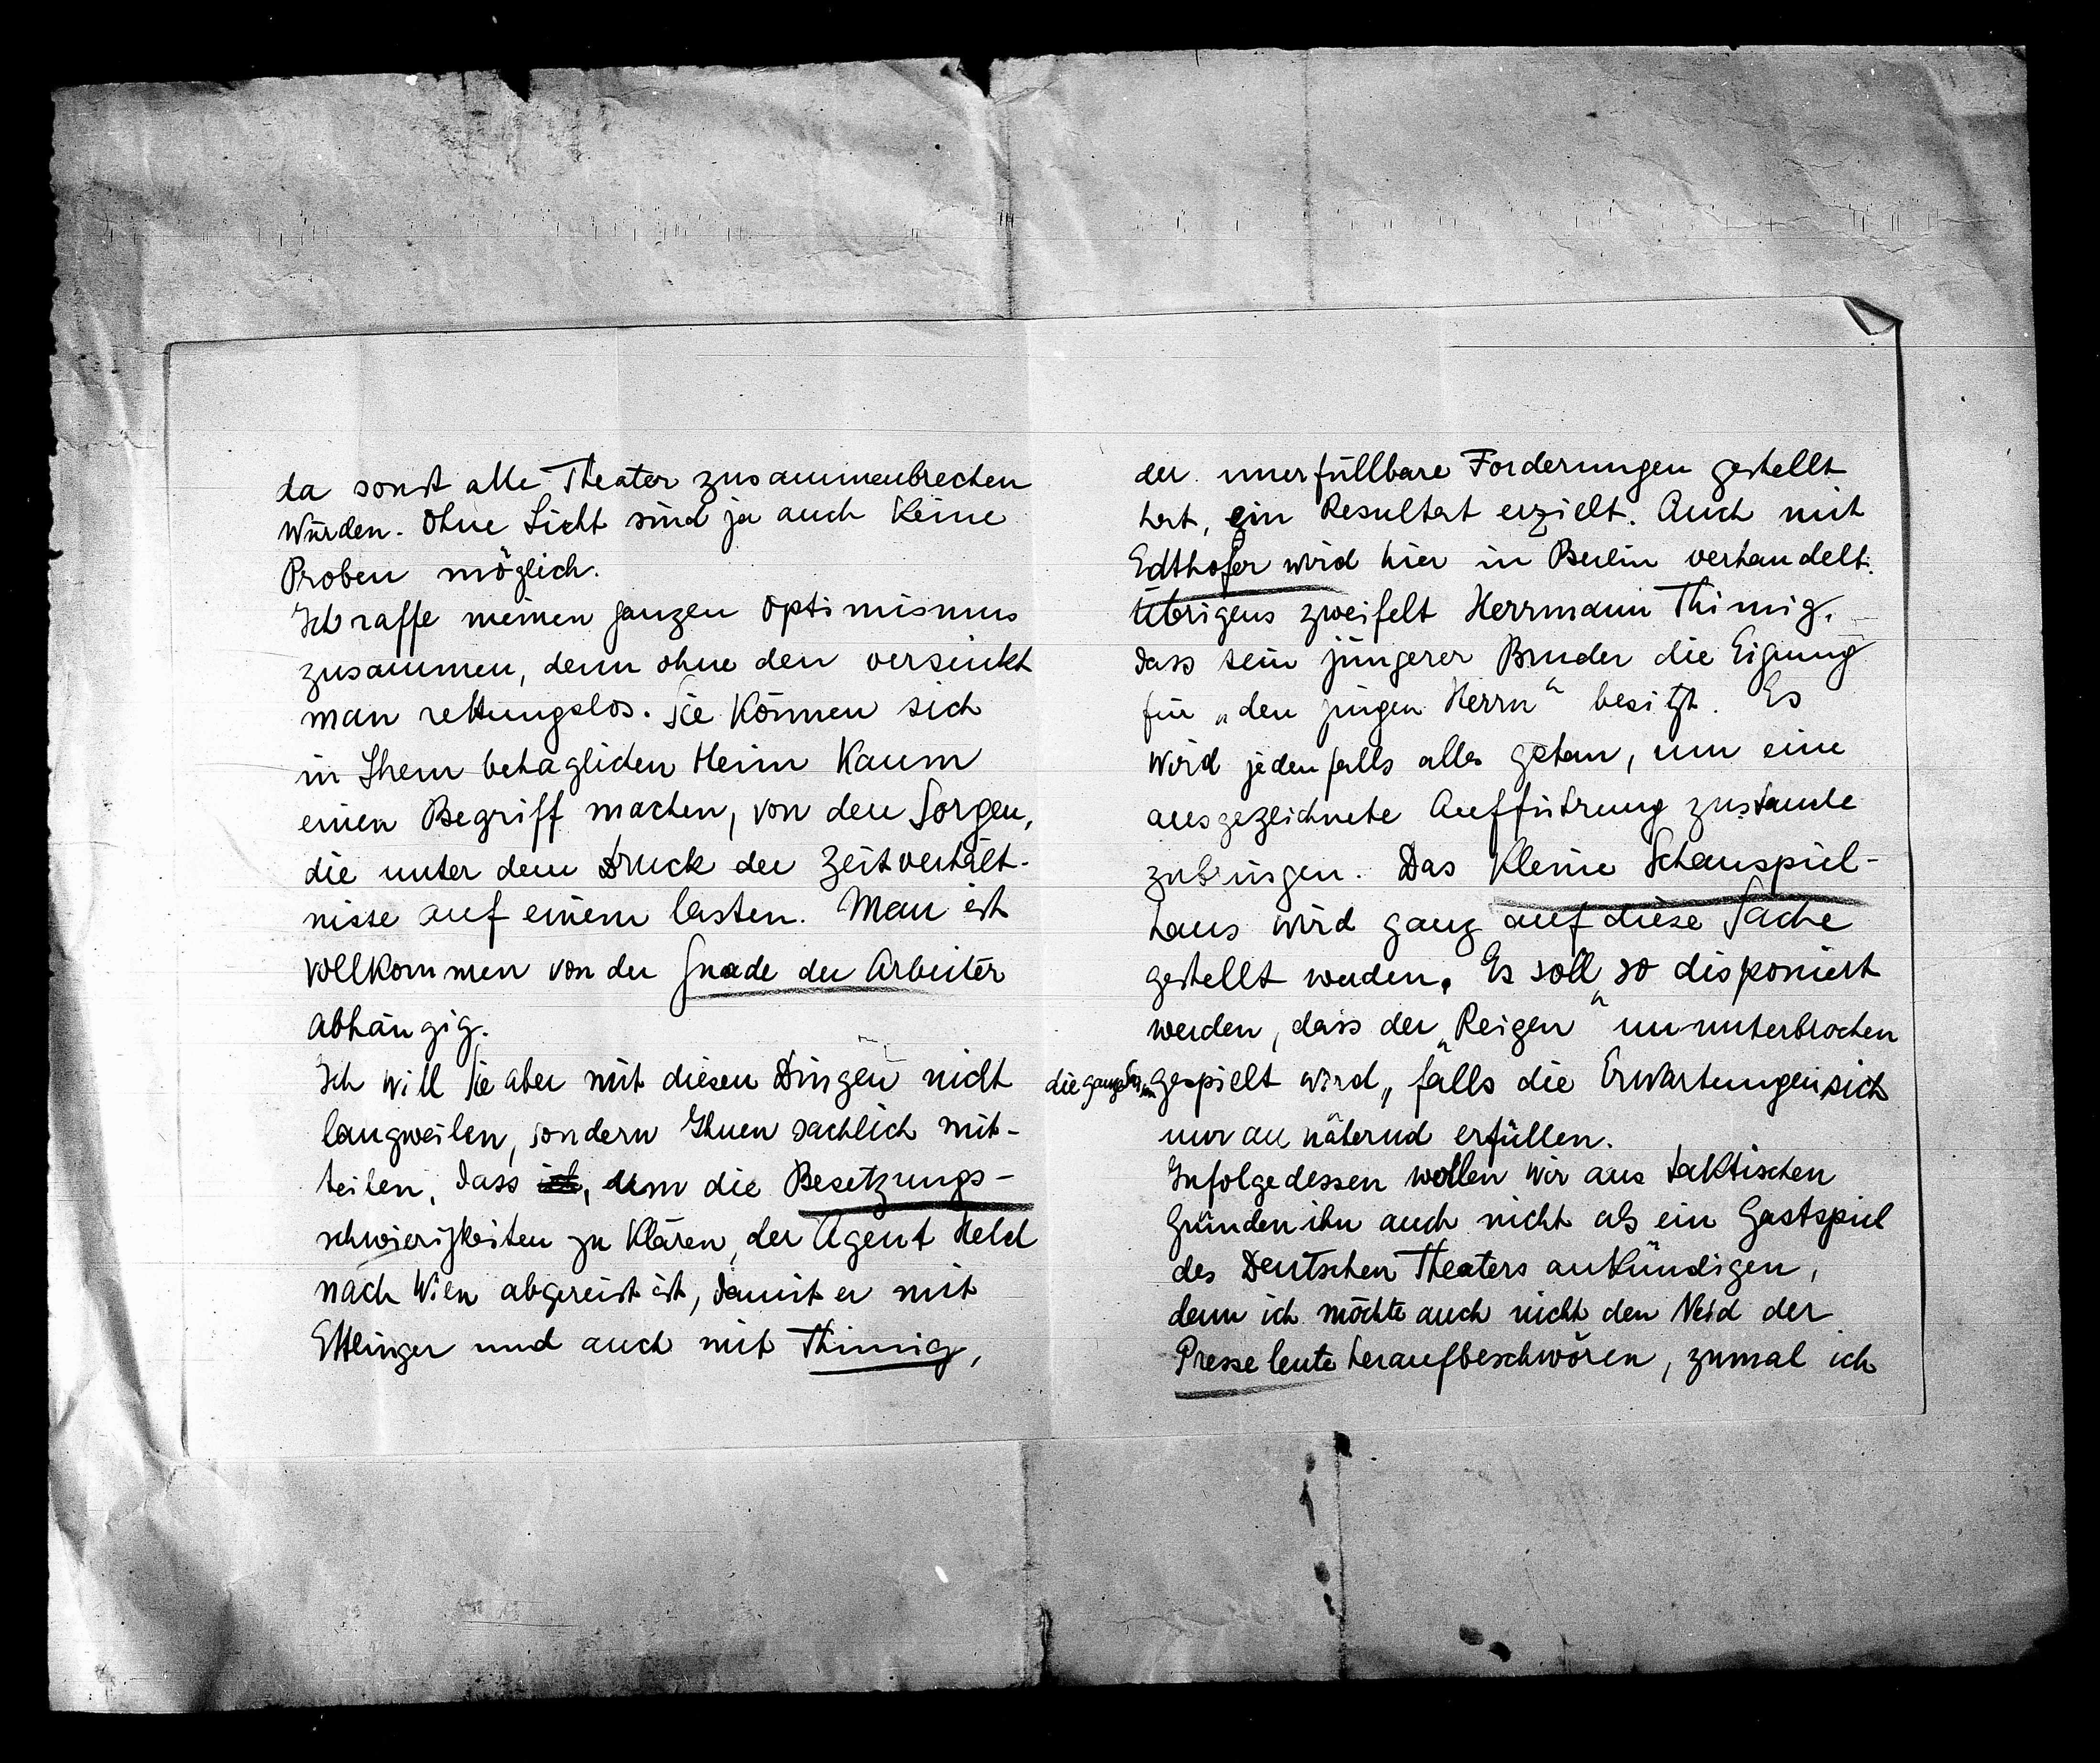 da sonst alle Theater zusammenbrechen
würden. Ohne Licht sind ja auch keine
Proben möglich.
Ich raffe meinen ganzen Optimismus
zusammen, denn ohne den versinkt
man rettungslos. Sie können sich
in Ihrem behaglichen Heim kaum
einen Begriff machen, von den Sorgen,
die unter dem Druck der Zeitverhält-
nisse auf einem lasten. Man ist
vollkommen von der Gnade der Arbeiter
abhängig.
Ich will Sie aber mit diesen Dingen nicht
langweilen, sondern Ihnen sachlich mit-
teilen, dass ich, um die Besetzungs-
schwierigkeiten zu klären, der Agent Held
nach Wien abgereist ist, damit er mit
Ettlinger und auch mit Thimig,
der unerfüllbare Forderungen gestellt
hat, ein Resultat erzielt. Auch mit
Edthofer wird hier in Berlin verhandelt.
Übrigens zweifelt Herrmann Thimig,
dass sein jüngerer Bruder die Eignung
für „den jungen Herrn" besitzt. Es
wird jedenfalls alles getan, um eine
ausgezeichnete Aufführung zustande
zubringen. Das Kleine Schauspiel-
haus wird ganz auf diese Sache
gestellt werden. Es soll so disponiert
werden, dass der „Reigen" ununterbrochen
die ganze gespielt wird, falls die Erwartungen sich
nur annähernd erfüllen.
Infolgedessen wollen wir aus taktischen
Gründen ihn auch nicht als ein Gastspiel
des Deutschen Theaters ankündigen,
denn ich möchte auch nicht den Neid der
Presseleute heraufbeschwören, zumal ich